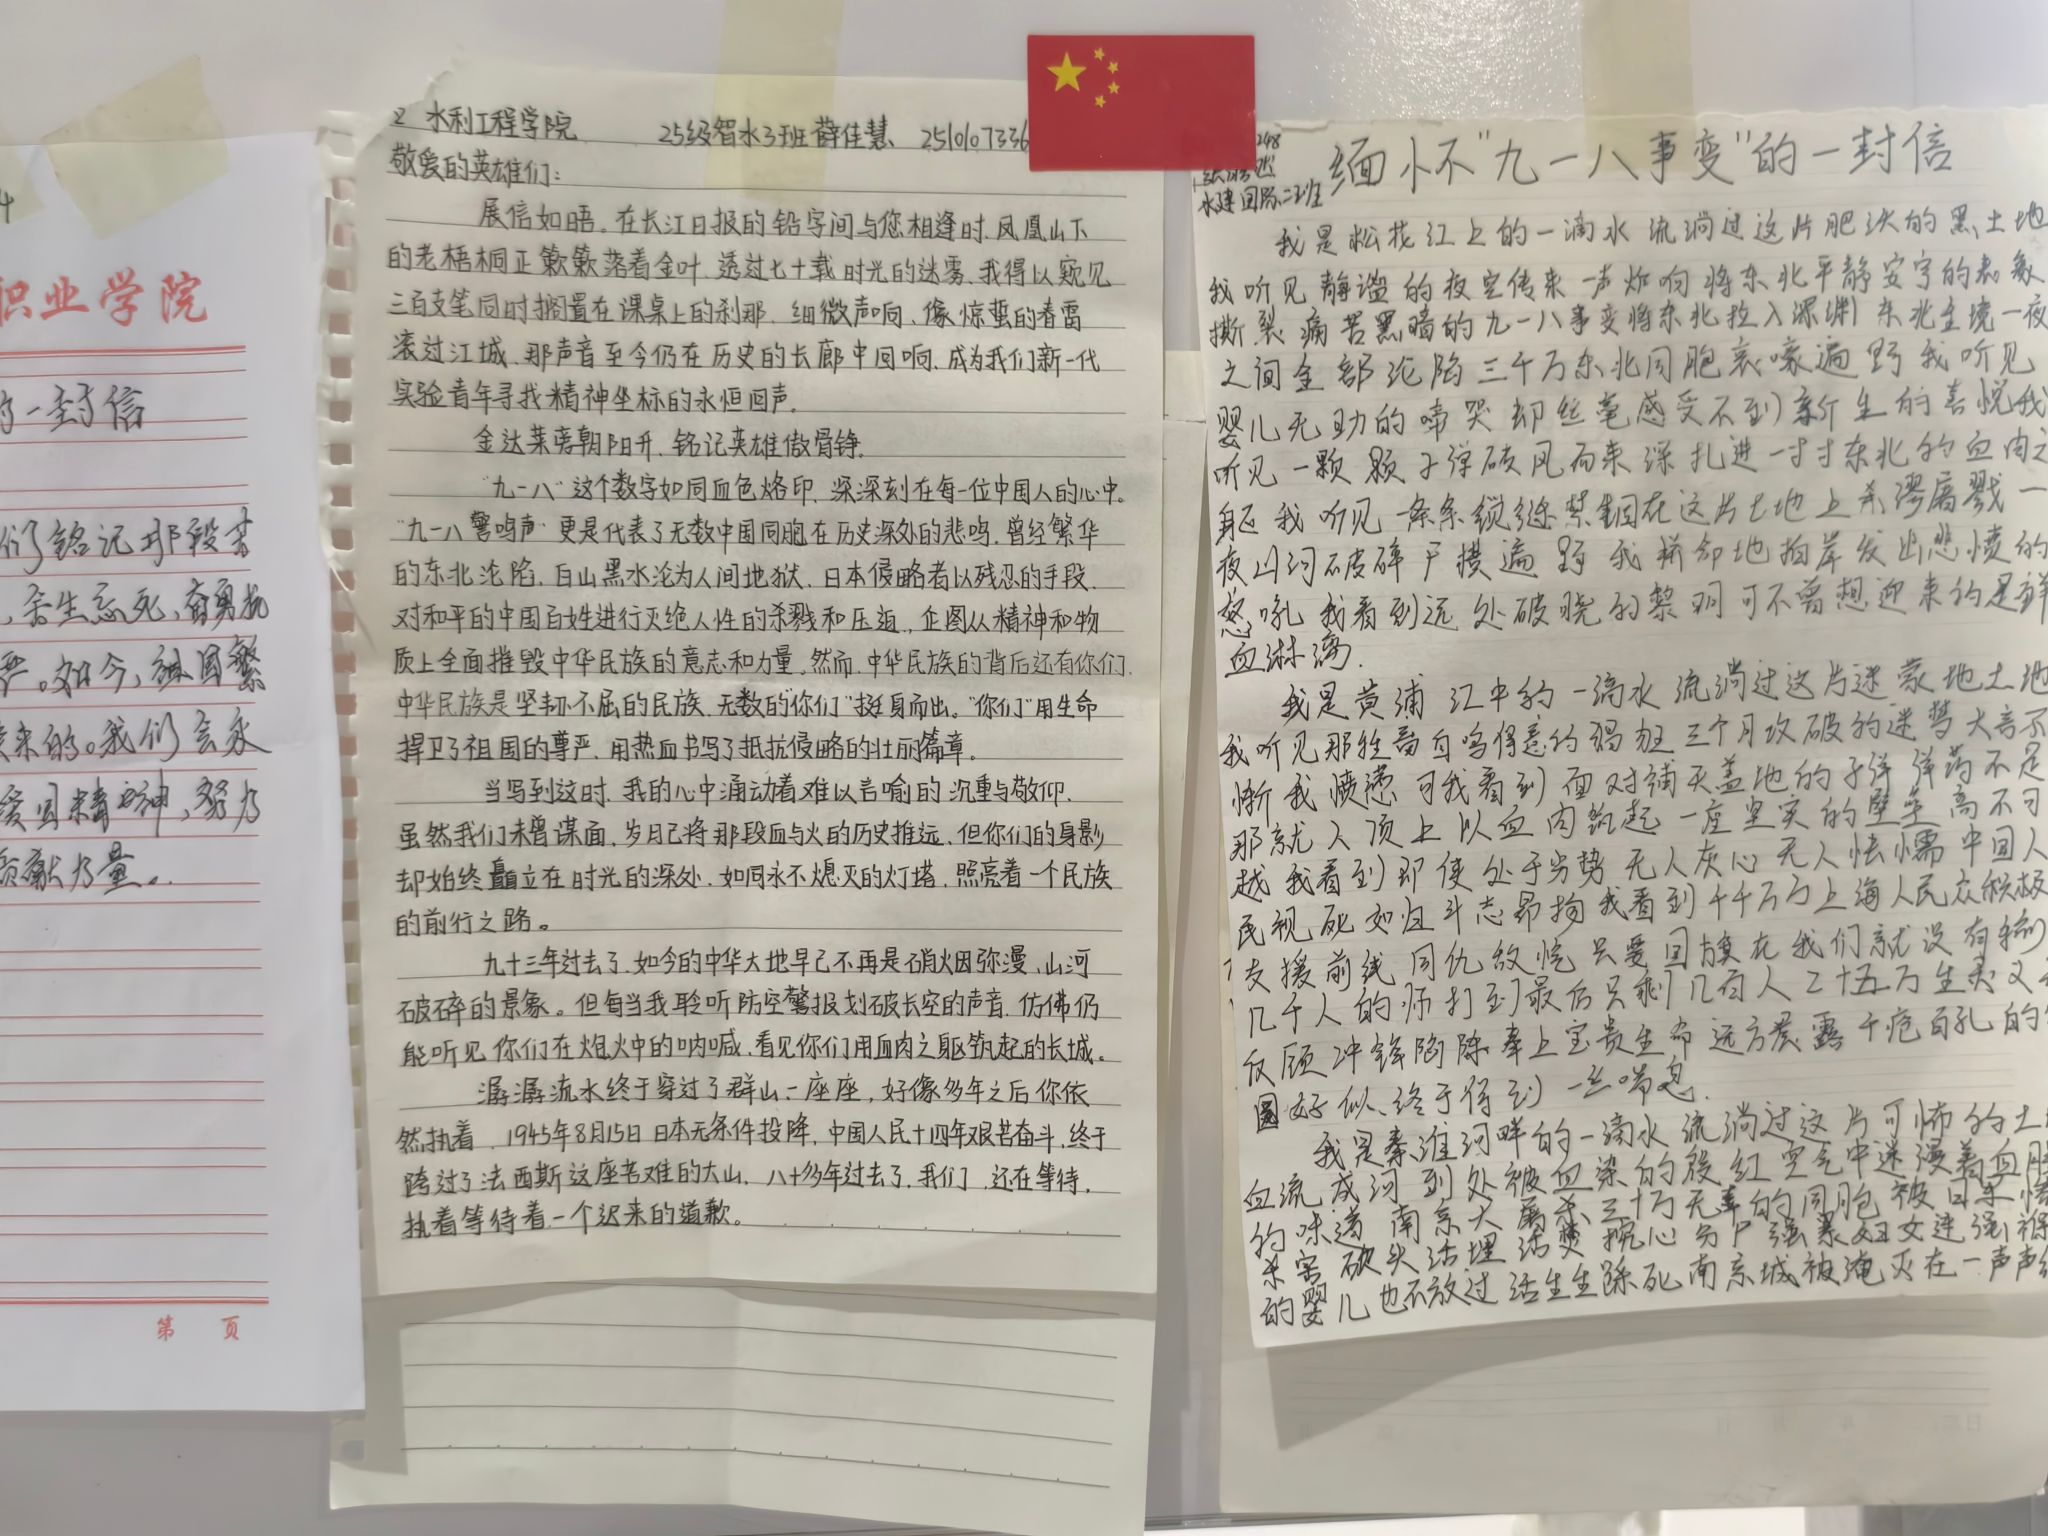 职业学院
的一封信
们了铭记那段
舍生忘死,奋勇抗
严。如今,祖国繁
来的。我们会永
爱国精神,努力
贡献力量。
第 页
水利工程学院 25级智水3班 薛佳慧、251007336
敬爱的英雄们:
展信如晤。在长江日报的铅字间与您相逢时,凤凰山下
的老梧桐正簌簌落着金叶,透过七十载时光的迷雾,我得以窥见
三百支笔同时搁置在课桌上的刹那,细微声响,像惊蛰的春雷
滚过江城,那声音至今仍在历史的长廊中回响,成为我们新一代
实验青年寻找精神坐标的永恒回声。
金达莱旁朝阳开,铭记英雄傲骨铮。
"九一八"这个数字如同血色烙印,深深刻在每一位中国人的心中。
"九一八警鸣声"更是代表了无数中国同胞在历史深处的悲鸣,曾经繁华
的东北沦陷,白山黑水沦为人间地狱,日本侵略者以残忍的手段,
对和平的中国百姓进行灭绝人性的杀戮和压迫,企图从精神和物
质上全面摧毁中华民族的意志和力量,然而,中华民族的背后还有你们,
中华民族是坚韧不屈的民族,无数的"你们"挺身而出。"你们"用生命
捍卫了祖国的尊严,用热血书写了抵抗侵略的壮丽篇章。
当写到这时,我的心中涌动着难以言喻的沉重与敬仰,
虽然我们未曾谋面,岁月已将那段血与火的历史推远,但你们的身影
却始终矗立在时光的深处,如同永不熄灭的灯塔,照亮着一个民族
的前行之路。
九十三年过去了,如今的中华大地早已不再是硝烟弥漫,山河
破碎的景象。但每当我聆听防空警报划破长空的声音,仿佛仍
能听见你们在炮火中的呐喊,看见你们用血肉之躯筑起的长城。
潺潺流水终于穿过了群山一座座,好像多年之后你依
然执着,1945年8月15日日本无条件投降,中国人民十四年艰苦奋斗,终于
跨过了法西斯这座苦难的大山,八十多年过去了,我们,还在等待,
执着等待着一个迟来的道歉。
水建国际二班
缅怀"九一八事变"的一封信
我是松花江上的一滴水 流淌过这片肥沃的黑土地
我听见静谧的夜空传来一声炸响 将东北平静安宁的表象
撕裂 痛苦黑暗的九一八事变将东北拉入深渊 东北全境一夜
之间全部沦陷 三千万东北同胞哀嚎遍野 我听见
婴儿无助的啼哭 却丝毫感受不到新生的喜悦 我
听见一颗颗子弹破风而来 深扎进一寸寸东北的血肉之
躯 我听见一条条锁链禁锢在这片土地上 杀谬屠戮一
夜 山河破碎 尸横遍野 我拼命地拍岸发出悲愤的
怒吼 我看到远处破晓的黎明 可不曾想迎来的是鲜
血淋漓.
我是黄浦江中的一滴水 流淌过这片迷蒙地土地
我听见那狂啬自鸣得意的猖狂 三个月攻破的迷梦 大言不
惭 我愤懑 可我看到面对铺天盖地的子弹 弹药不足
那就人顶上 以血肉筑起一座坚实的壁垒 高不可
越 我看到即使处于劣势 无人灰心 无人怯懦 中国人
民视死如归 斗志昂扬 我看到千千万万上海人民众积极
支援前线 同仇敌忾 只要国旗在 我们就没有输
几千人的师打到最后只剩几百人 二十五万生灵义无
反顾 冲锋陷阵 奉上宝贵生命 远方袅露千疮百孔的
国好似终于得到一丝喘息.
我是秦淮河畔的一滴水 流淌过这片可怖的土
血流成河 到处被血染的殷红 空气中迷漫着血腥
的味道 南京大屠杀 三十万无辜的同胞 被日军
杀害 砍头 活埋 活焚 挖心 分尸 强暴妇女 连强褓
的婴儿也不放过 活生生跺死 南京城被淹灭在一声声